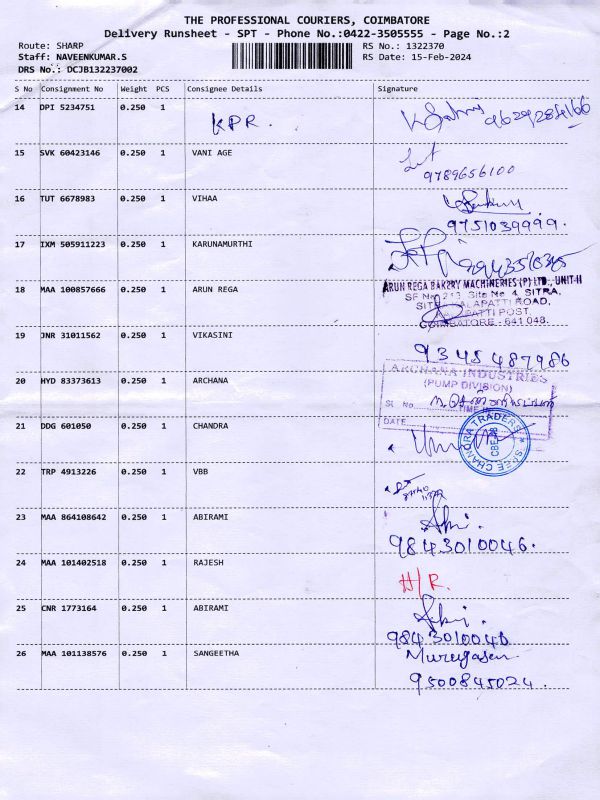 THE PROFESSIONAL COURIERS, COIMBATORE
Delivery Runsheet - SPT - Phone No.:0422-3505555 - Page No.:2
Route: SHARP
RS No.: 1322370
Staff: NAVEENKUMAR.S
RS Date: 15-Feb-2024
DRS No.: DCJB132237002
S No Consignment No Weight PCS Consignee Details Signature
14 DPI 5234751 0.250 1 KPR. 9629284166
15 SVK 60423146 0.250 1 VANI AGE
9789656100
16 TUT 6678983 0.250 1 VIHAA
9751039999.
17 IXM 505911223 0.250 1 KARUNAMURTHI
18 MAA 100857666 0.250 1 ARUN REGA
ARUN REGA BAKERY MACHINERIES (P) LTD., UNIT-II
SF No 213, Site No 4, SITRA,
ROAD,
POST,
COIMBATORE - 641 048.
19 JNR 31011562 0.250 1 VIKASINI
9345487986
20 HYD 83373613 0.250 1 ARCHANA
ARCHANA INDUSTRIES
(PUMP DIVISION)
Sl. No. TIME
DATE
21 DDG 601050 0.250 1 CHANDRA
SREE CHANDRA TRADERS
22 TRP 4913226 0.250 1 VBB
23 MAA 864108642 0.250 1 ABIRAMI Abi.
9843010046.
24 MAA 101402518 0.250 1 RAJESH H/R.
25 CNR 1773164 0.250 1 ABIRAMI Abi.
9843010046
26 MAA 101138576 0.250 1 SANGEETHA Murugasen
9500845024.